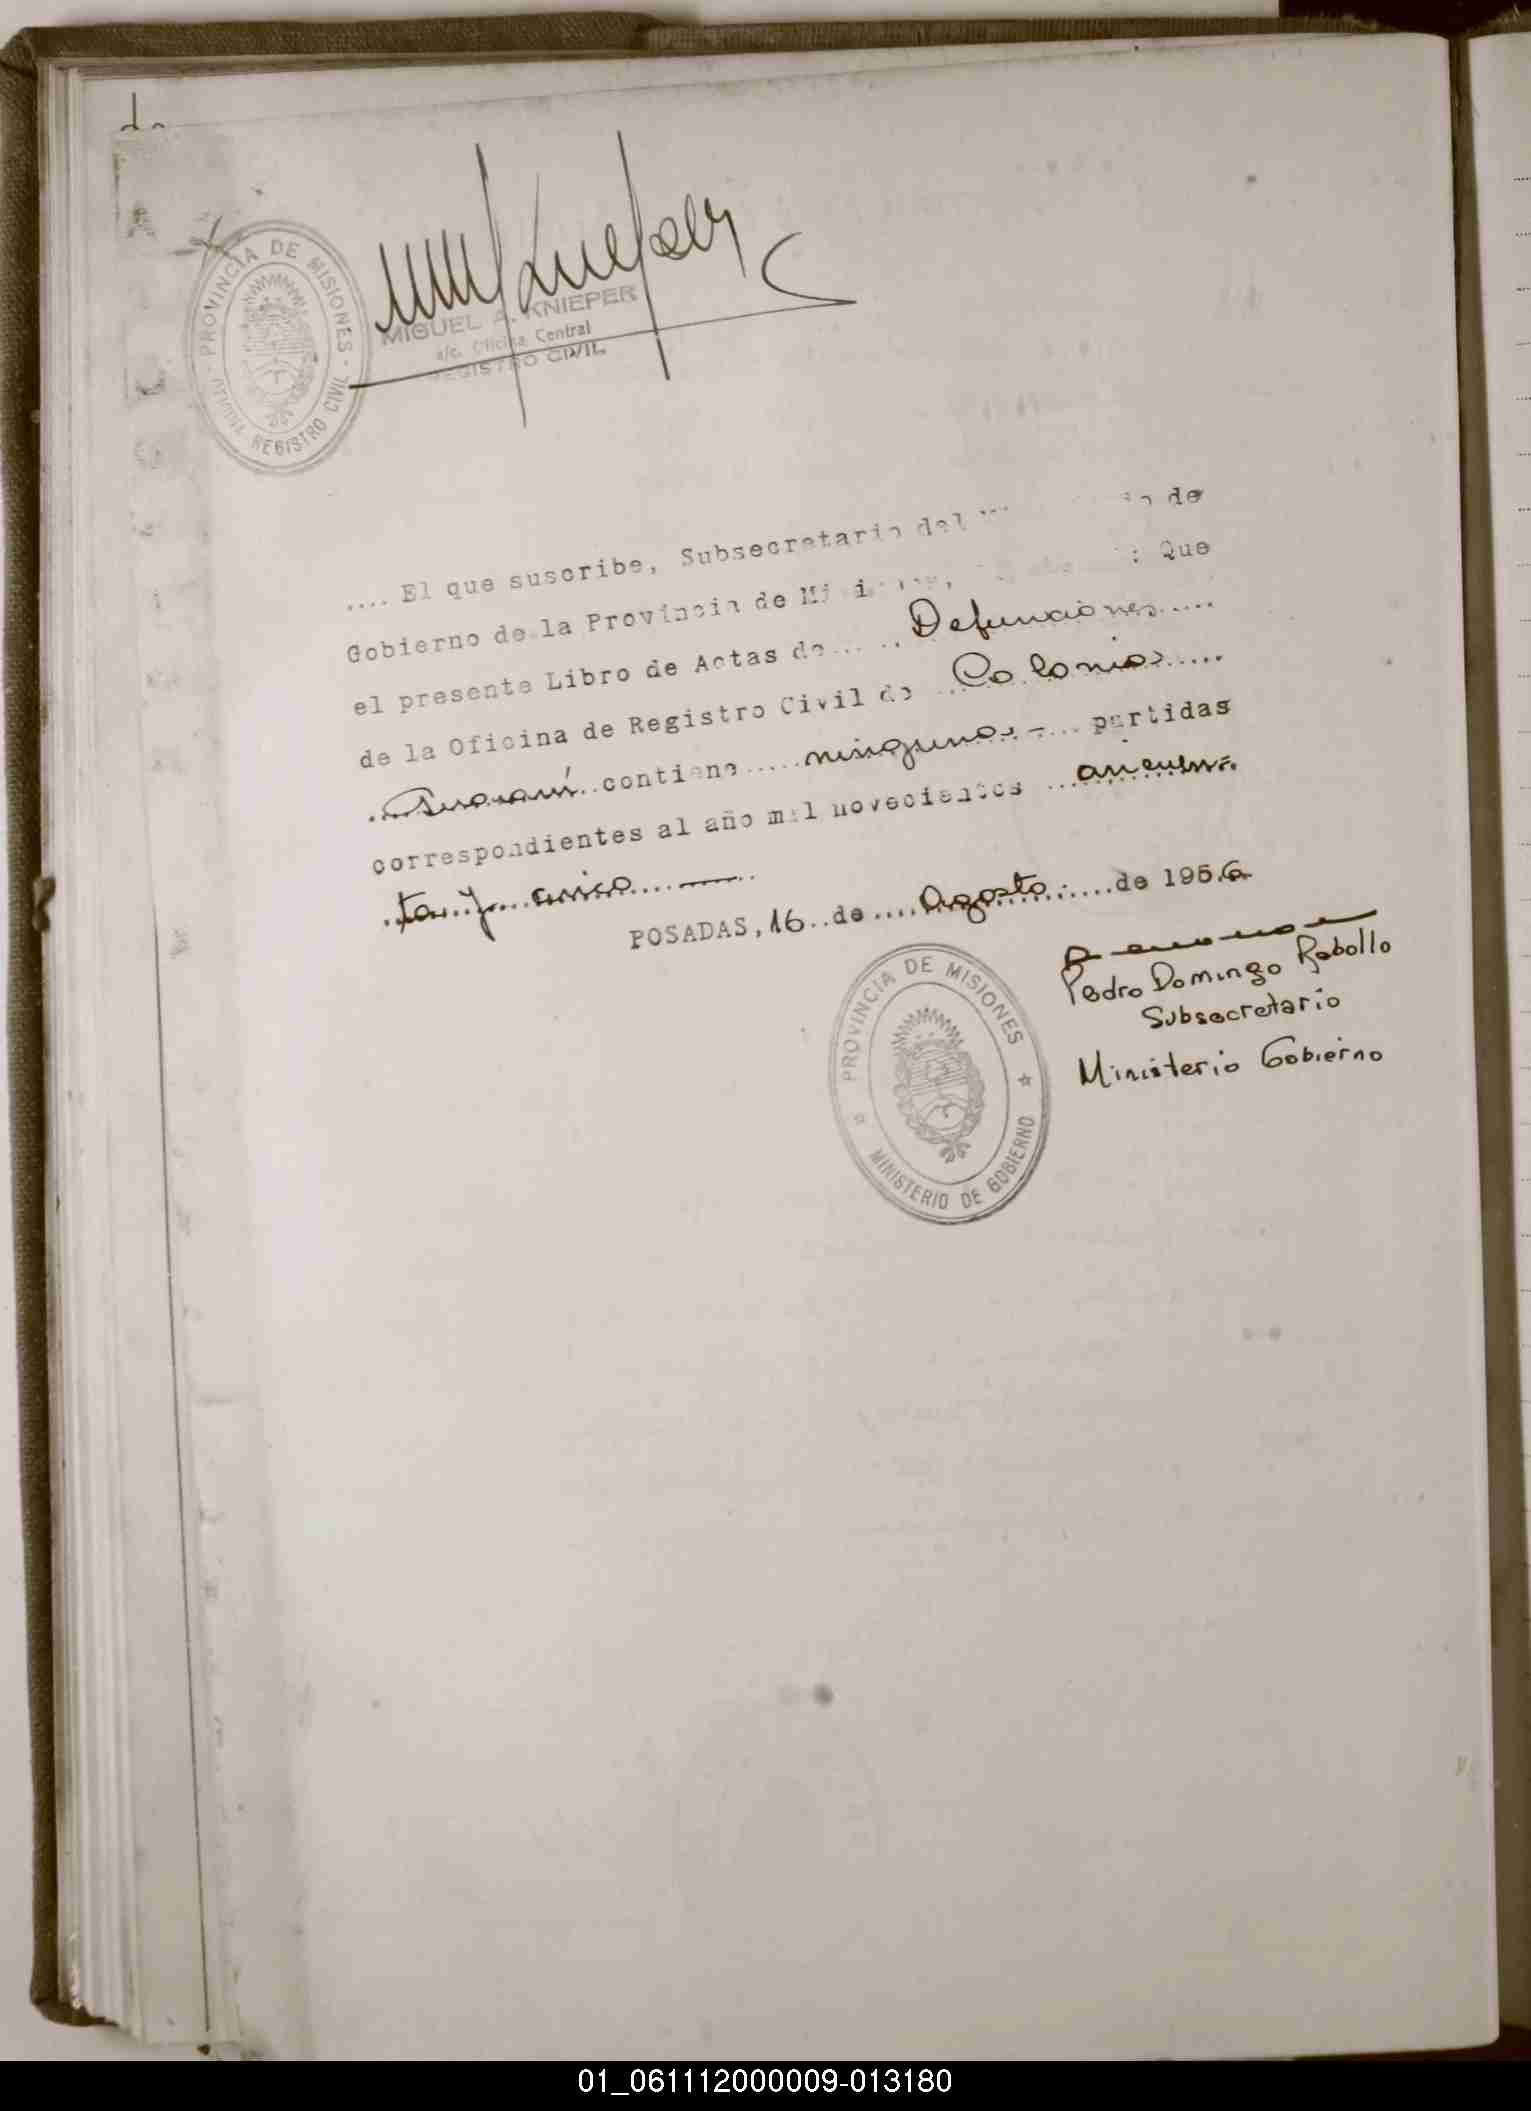 PROVINCIA DE MISIONES
REGISTRO CIVIL
MIGUEL A. KNIEPER
a/c. Oficina Central
REGISTRO CIVIL
.... El que suscribe, Subsecretario del de
Gobierno de la Provincia de Misiones, : Que
el presente Libro de Actas de..... Defunciones.....
de la Oficina de Registro Civil de ... Colonia.....
...Guaraní..contiene.....ninguna.-.... partidas
correspondientes al año mil novecientos ...cincuen=
..ta..y...cinco....——..
POSADAS,16..de....Agosto.....de 1956
Pedro Domingo Rebollo
Subsecretario
Ministerio Gobierno
PROVINCIA DE MISIONES
MINISTERIO DE GOBIERNO
01_061112000009-013180